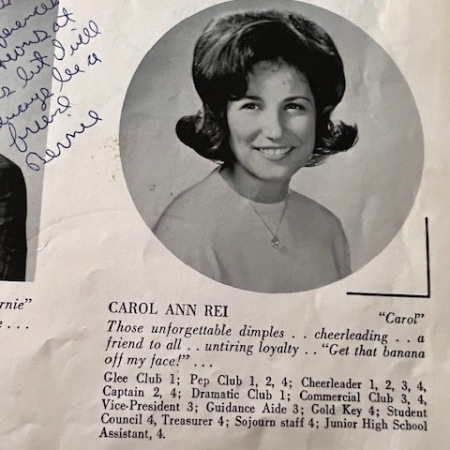 but I will
always be a
friend
Bernie
rnie"
CAROL ANN REI
"Carol"
Those unforgettable dimples . . cheerleading . . a
friend to all . . untiring loyalty . . "Get that banana
off my face!" . . .
Glee Club 1; Pep Club 1, 2, 4; Cheerleader 1, 2, 3, 4,
Captain 2, 4; Dramatic Club 1; Commercial Club 3, 4,
Vice-President 3; Guidance Aide 3; Gold Key 4; Student
Council 4, Treasurer 4; Sojourn staff 4; Junior High School
Assistant, 4.